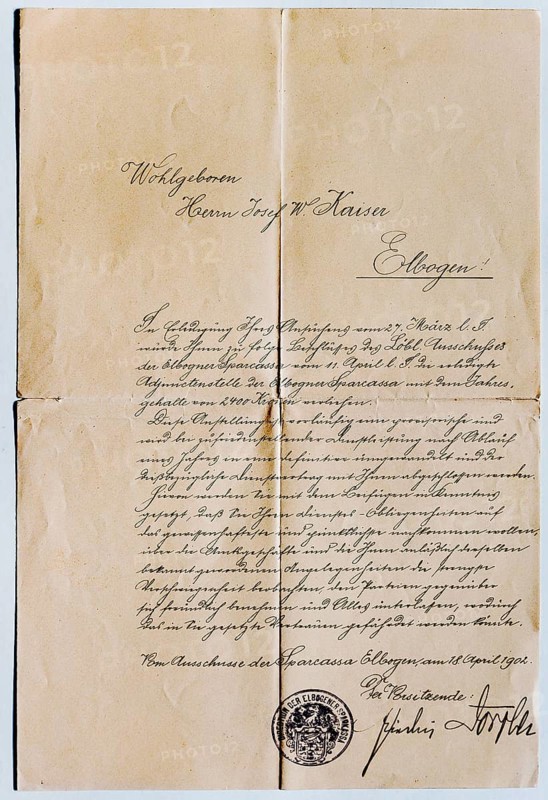 Wohlgeboren
Herrn Josef W. Kaiser
Elbogen!
In Erledigung Ihres Ansuchens vom 27. März l. J.
wurde Ihnen zu folge Beschlusses des Löbl. Ausschusses
der Elbogner Sparcassa vom 11. April l. J. die erledigte
Adjunctenstelle der Elbogner Sparcassa mit dem Jahres-
gehalte von 2400 Kronen verliehen.
Diese Anstellung ist vorläufig eine provisorische und
wird bei zufriedenstellender Dienstleistung nach Ablauf
eines Jahres in eine definitive umgewandelt und der
diesbezügliche Dienstvertrag mit Ihnen abgeschlossen werden.
Hievon werden Sie mit dem Beifügen in Kenntnis
gesetzt, daß Sie Ihren Dienstes-Obliegenheiten auf
das gewissenhafteste und pünktlichste nachkommen wollen,
über die Amtsgeschäfte und die Ihnen anläßlich derselben
bekannt gewordenen Angelegenheiten die strengste
Verschwiegenheit beobachten, den Parteien gegenüber
sich freundlich benehmen und Alles unterlassen, wodurch
das in Sie gesetzte Vertrauen gefährdet werden könnte.
Vom Ausschusse der Sparcassa Elbogen, am 18. April 1902.
Der Vorsitzende:
DER ELBOGENER SPARKASSA
PHOTO12